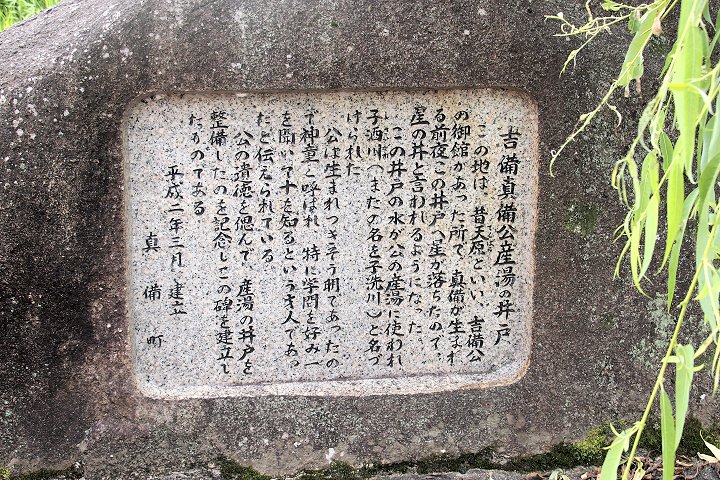 吉備真備公産湯の井戸
この地は、昔天原といい、吉備公
の御館があった所で、真備が生まれ
る前夜この井戸へ星が落ちたので、
星の井と言われるようになった。
この井戸の水が公の産湯に使われ
子洒川(またの名を子洗川)と名づ
けられた
公は生まれつきそう明であったの
で神童と呼ばれ 特に学問を好み一
を聞いて十を知るという才人であっ
たと伝えられている。
公の遺徳を偲んで、産湯の井戸を
整備したのを記念してこの碑を建立し
たものである
平成二年三月 建立
真備町